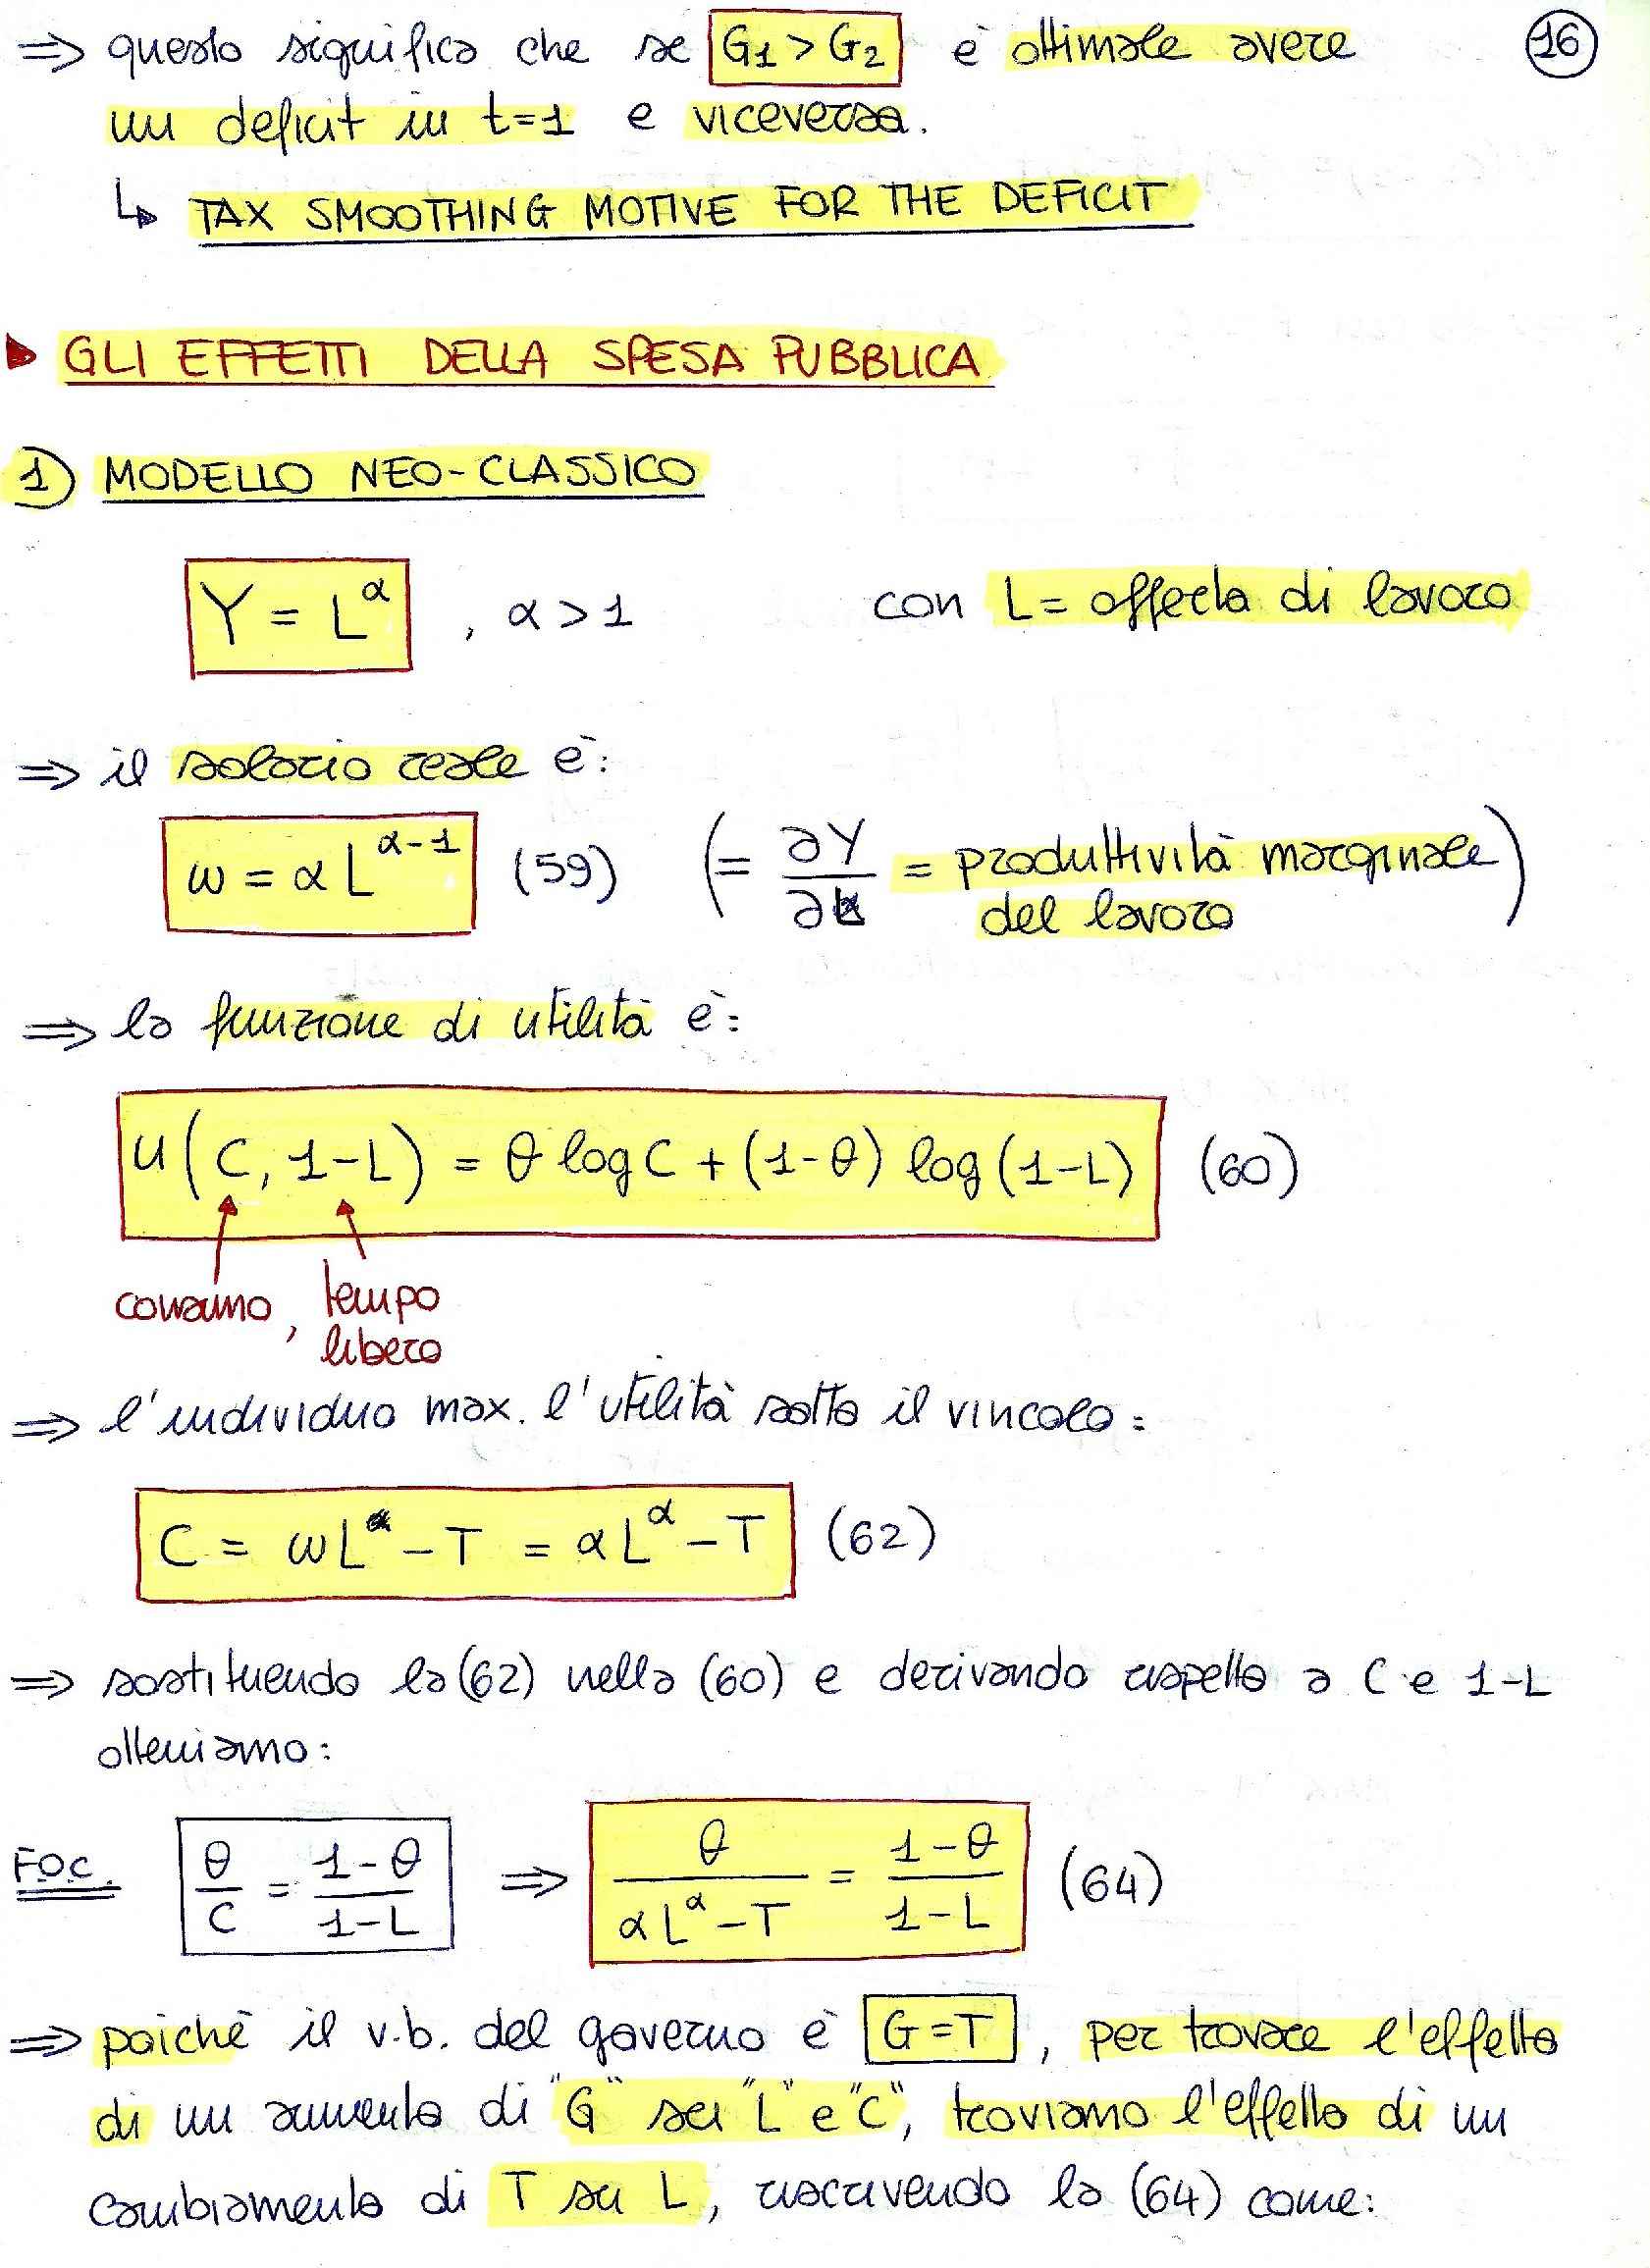 ⇒ questo significa che se G1 > G2 è ottimale avere
16
un deficit in t=1 e viceversa.
↳ TAX SMOOTHING MOTIVE FOR THE DEFICIT
▶ GLI EFFETTI DELLA SPESA PUBBLICA
1) MODELLO NEO-CLASSICO
Y = L^α , α > 1 con L = offerta di lavoro
⇒ il salario reale è:
ω = α L^(α-1) (59) (= ∂Y/∂L = produttività marginale
del lavoro)
⇒ la funzione di utilità è:
u(C, 1-L) = θ log C + (1-θ) log (1-L) (60)
consumo, tempo
libero
⇒ l'individuo max. l'utilità sotto il vincolo:
C = ωL - T = αL^α - T (62)
⇒ sostituendo la (62) nella (60) e derivando rispetto a C e 1-L
otteniamo:
F.O.C. θ/C = (1-θ)/(1-L) ⇒ θ/(αL^α - T) = (1-θ)/(1-L) (64)
⇒ poichè il v.b. del governo è G=T, per trovare l'effetto
di un aumento di "G" su "L" e "C", troviamo l'effetto di un
cambiamento di T su L, riscrivendo la (64) come: